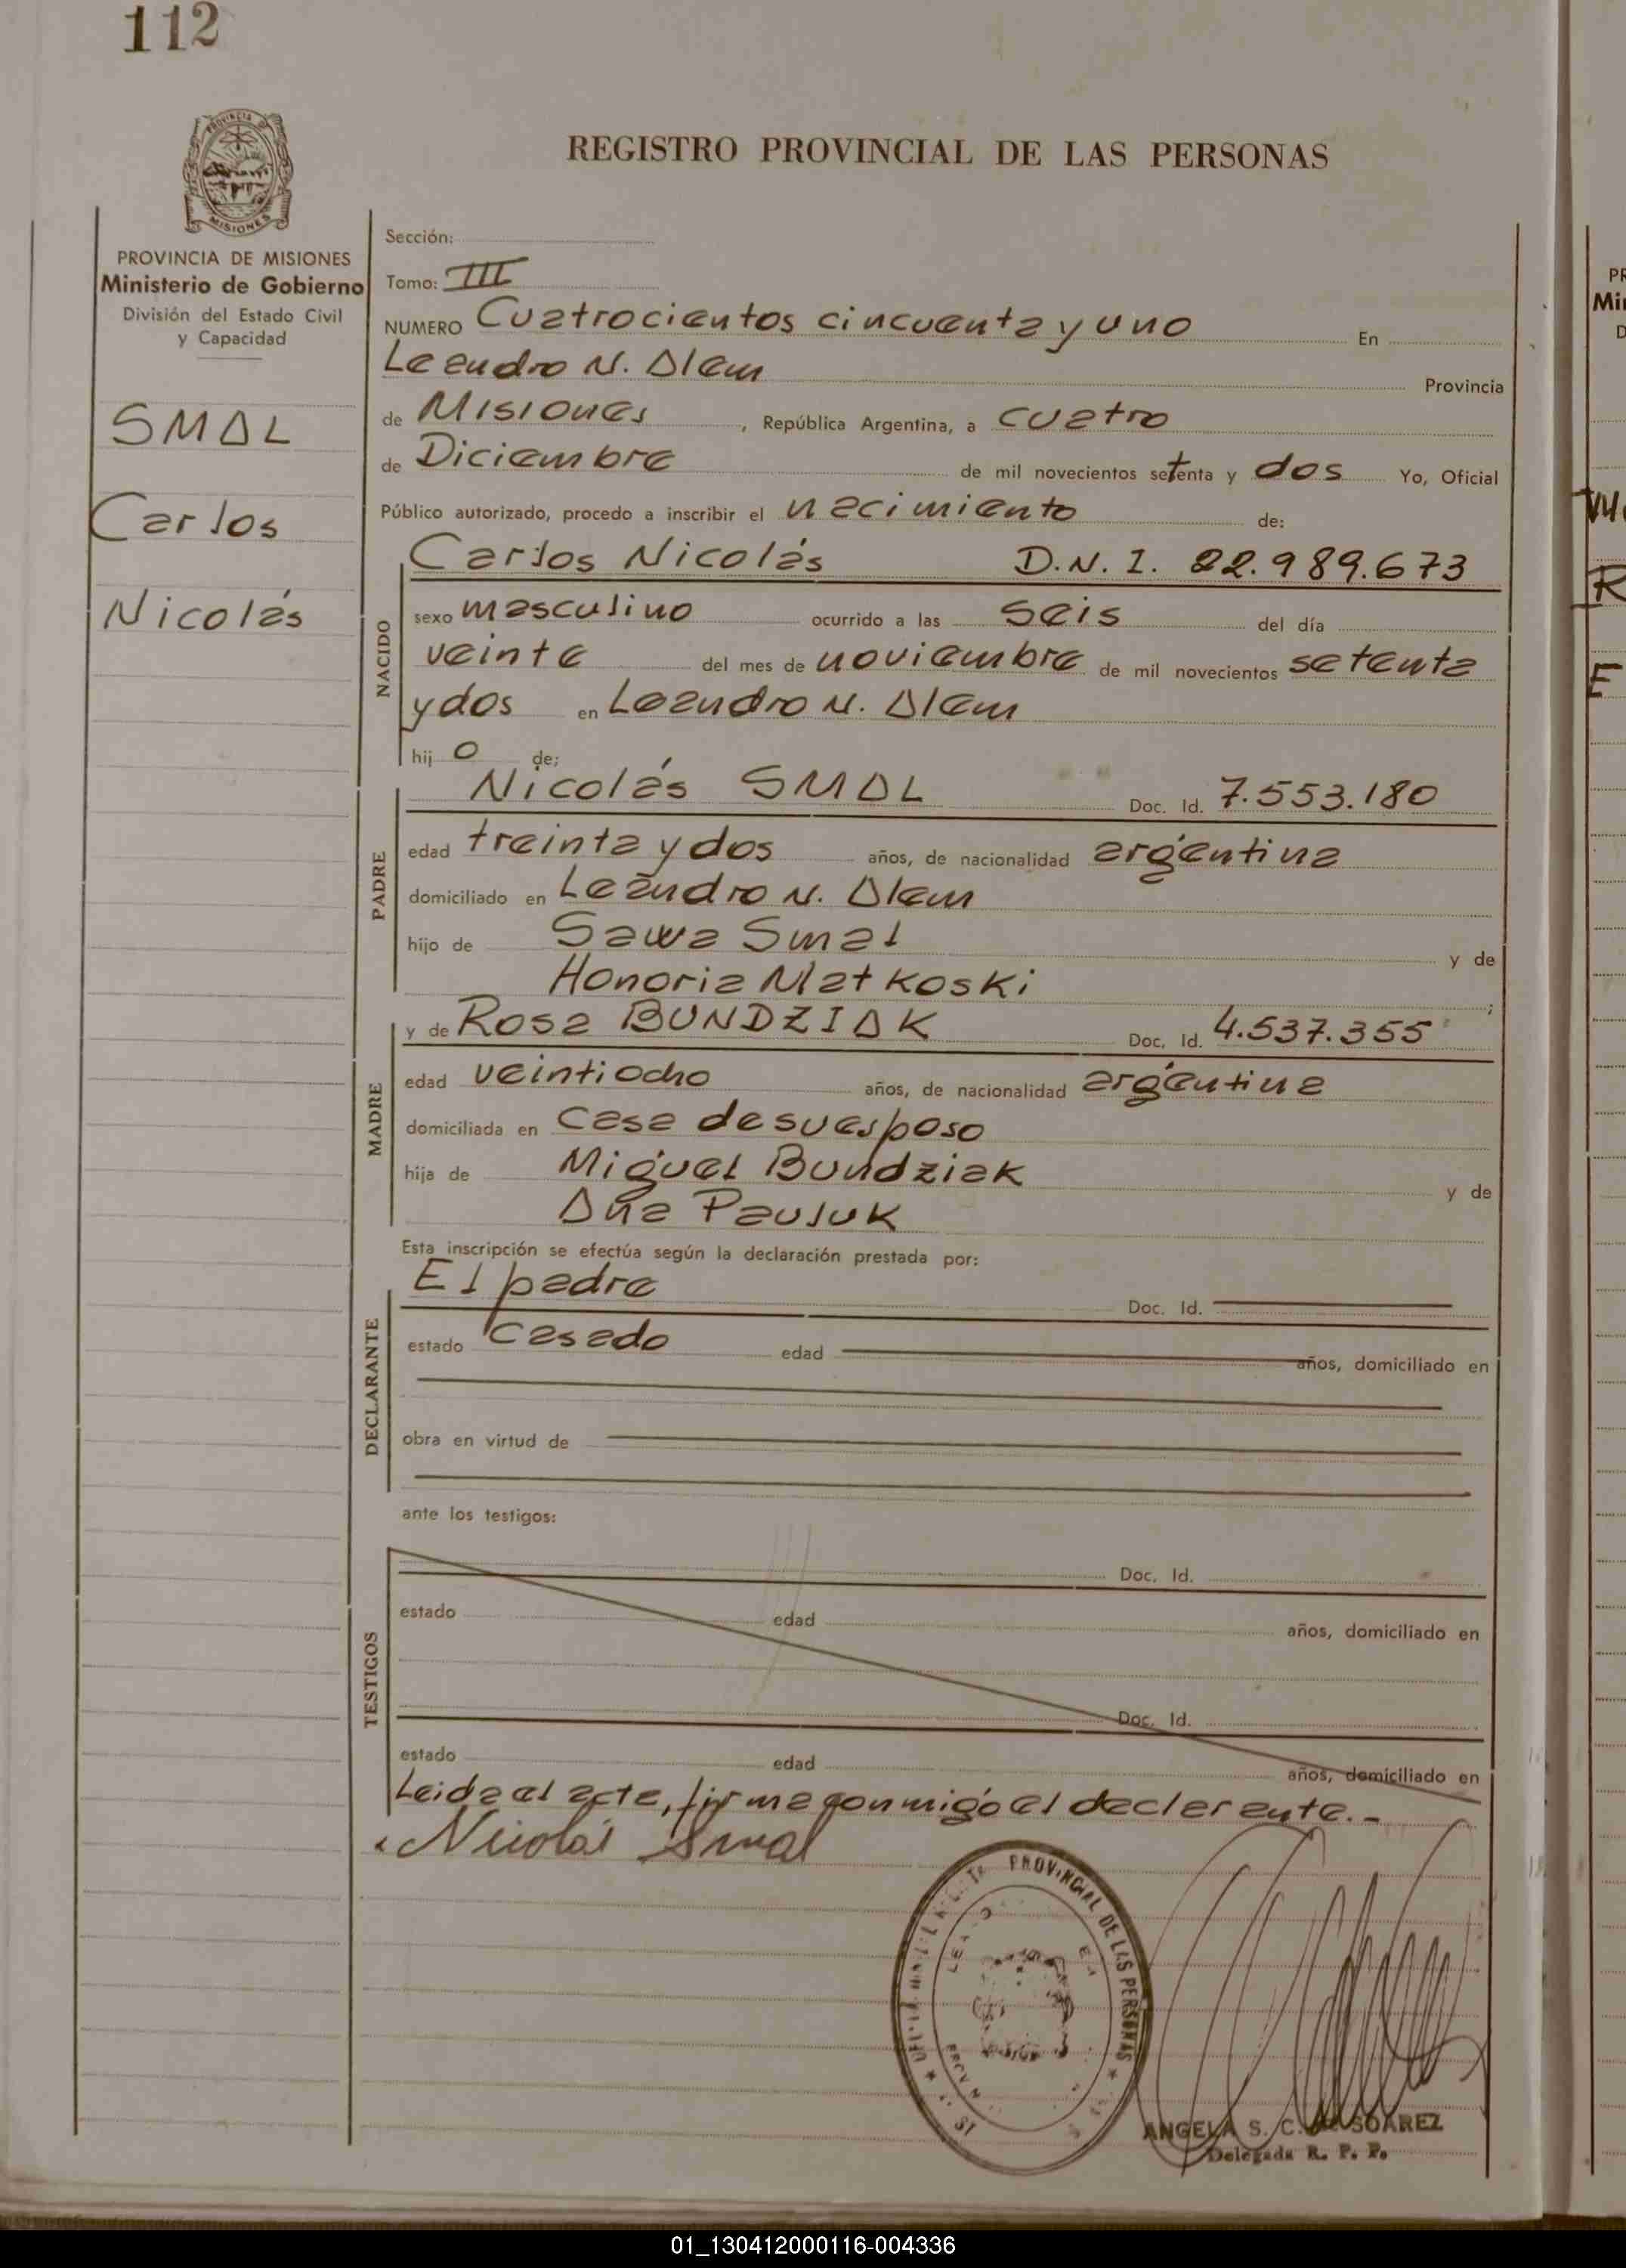 112
REGISTRO PROVINCIAL DE LAS PERSONAS
PROVINCIA DE MISIONES
Ministerio de Gobierno
División del Estado Civil
y Capacidad
SMAL
Carlos
Nicolás
Sección:
Tomo: III
NUMERO Cuatrocientos cincuenta y uno En
Leandro N. Alem Provincia
de Misiones, República Argentina, a cuatro
de Diciembre de mil novecientos setenta y dos Yo, Oficial
Público autorizado, procedo a inscribir el nacimiento de:
NACIDO
Carlos Nicolás D.N.I. 22.989.673
sexo masculino ocurrido a las seis del día
veinte del mes de noviembre de mil novecientos setenta
y dos en Leandro N. Alem
hij o de:
PADRE
Nicolás SMAL Doc. Id. 7.553.180
edad treinta y dos años, de nacionalidad argentina
domiciliado en Leandro N. Alem
hijo de Sawa Smal y de
Honoria Matkoski;
MADRE
y de Rosa BUNDZIAK Doc. Id. 4.537.355
edad veintiocho años, de nacionalidad argentina
domiciliada en casa de su esposo
hija de Miguel Bundziak y de
Ana Pauluk
Esta inscripción se efectúa según la declaración prestada por:
DECLARANTE
El padre Doc. Id.
estado casado edad años, domiciliado en
obra en virtud de
ante los testigos:
TESTIGOS
Doc. Id.
estado edad años, domiciliado en
Doc. Id.
estado edad años, domiciliado en
Leida el acta, firma conmigo el declarante.-
Nicolás Smal
PROVINCIAL DE LAS PERSONAS
ANGELA S. C. DE SOAREZ
Delegada R. P. P.
01_130412000116-004336